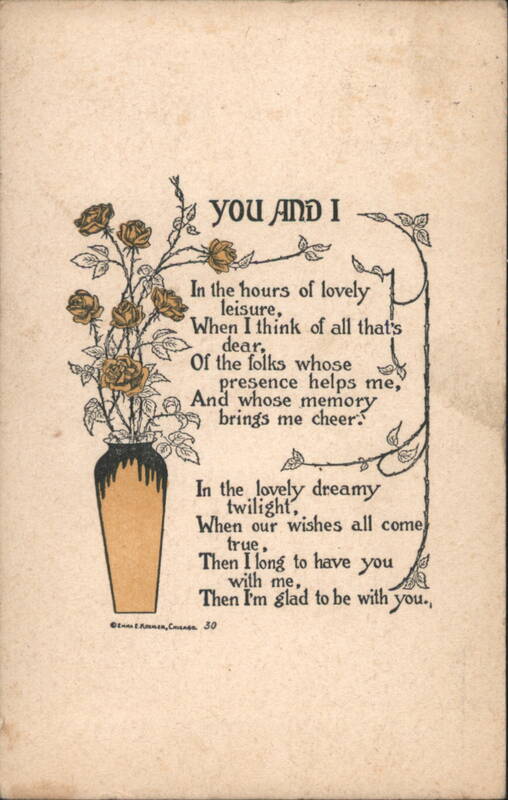 YOU AND I
In the hours of lovely
leisure,
When I think of all that's
dear,
Of the folks whose
presence helps me,
And whose memory
brings me cheer.
In the lovely dreamy
twilight,
When our wishes all come
true,
Then I long to have you
with me,
Then I'm glad to be with you.
© Emma E. Koehler, Chicago. 30